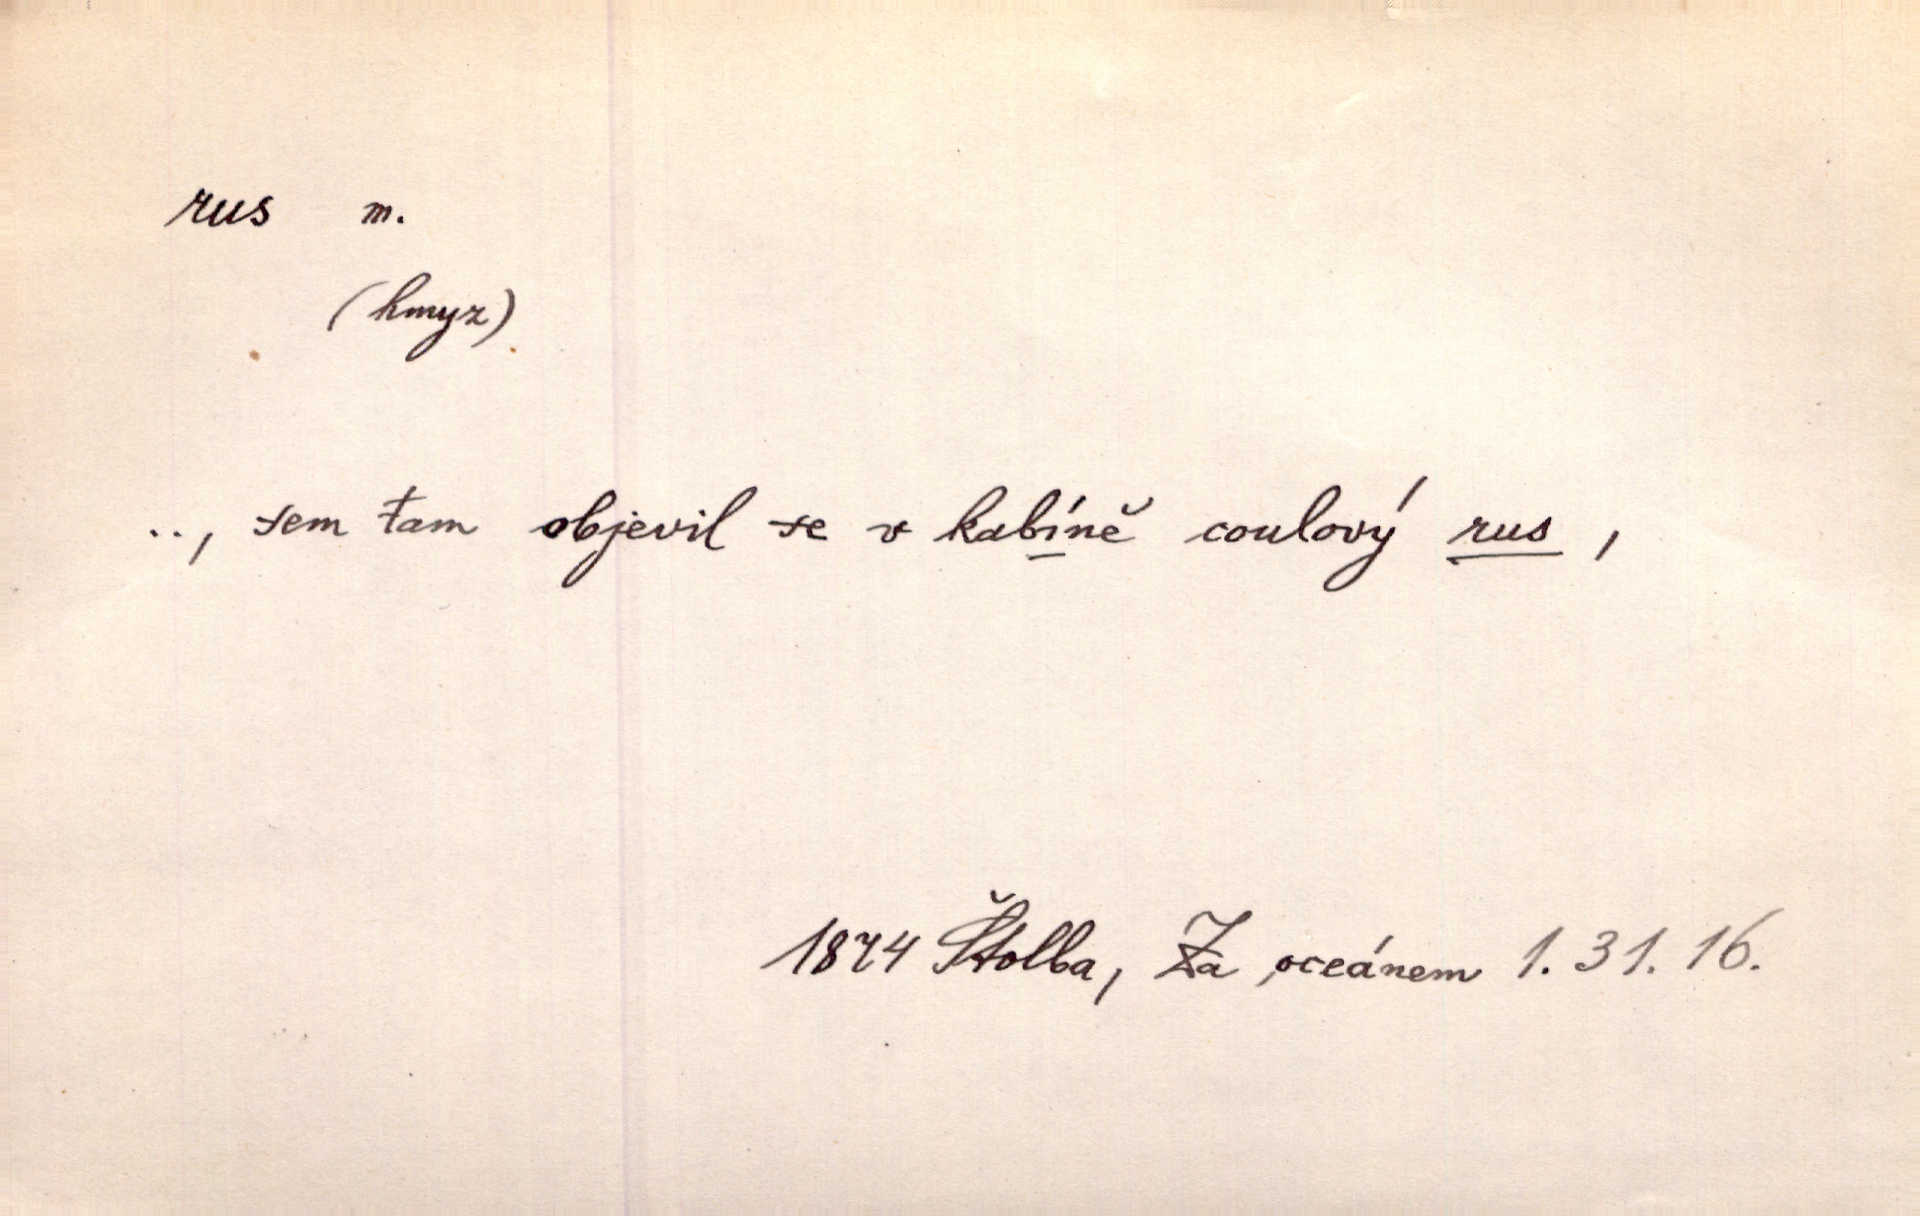 rus m.
(hmyz)
.., sem tam objevil se v kabíně coulový rus,
1874 Štolba, Za oceánem 1. 31. 16.